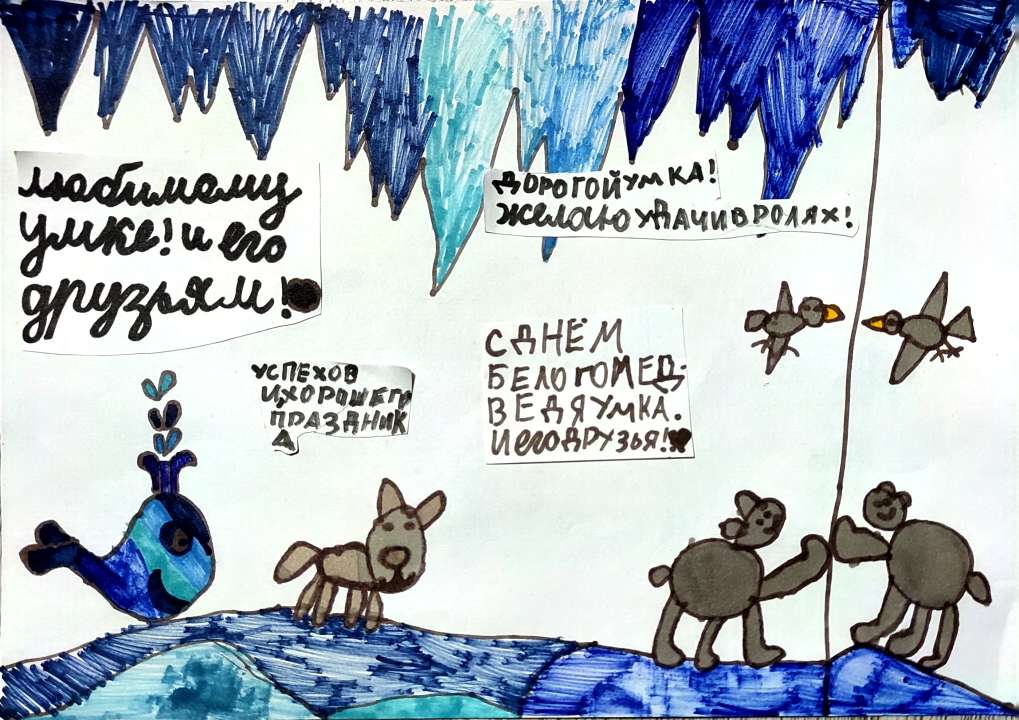 любимому
Умке! и его
друзьям!
ДОРОГОЙ УМКА!
ЖЕЛАЮ УДАЧИ В РОЛЯХ!
УСПЕХОВ
И ХОРОШЕГО
ПРАЗДНИК
А
С ДНЁМ
БЕЛОГО МЕД-
ВЕДЯ УМКА.
И его ДРУЗЬЯ!!